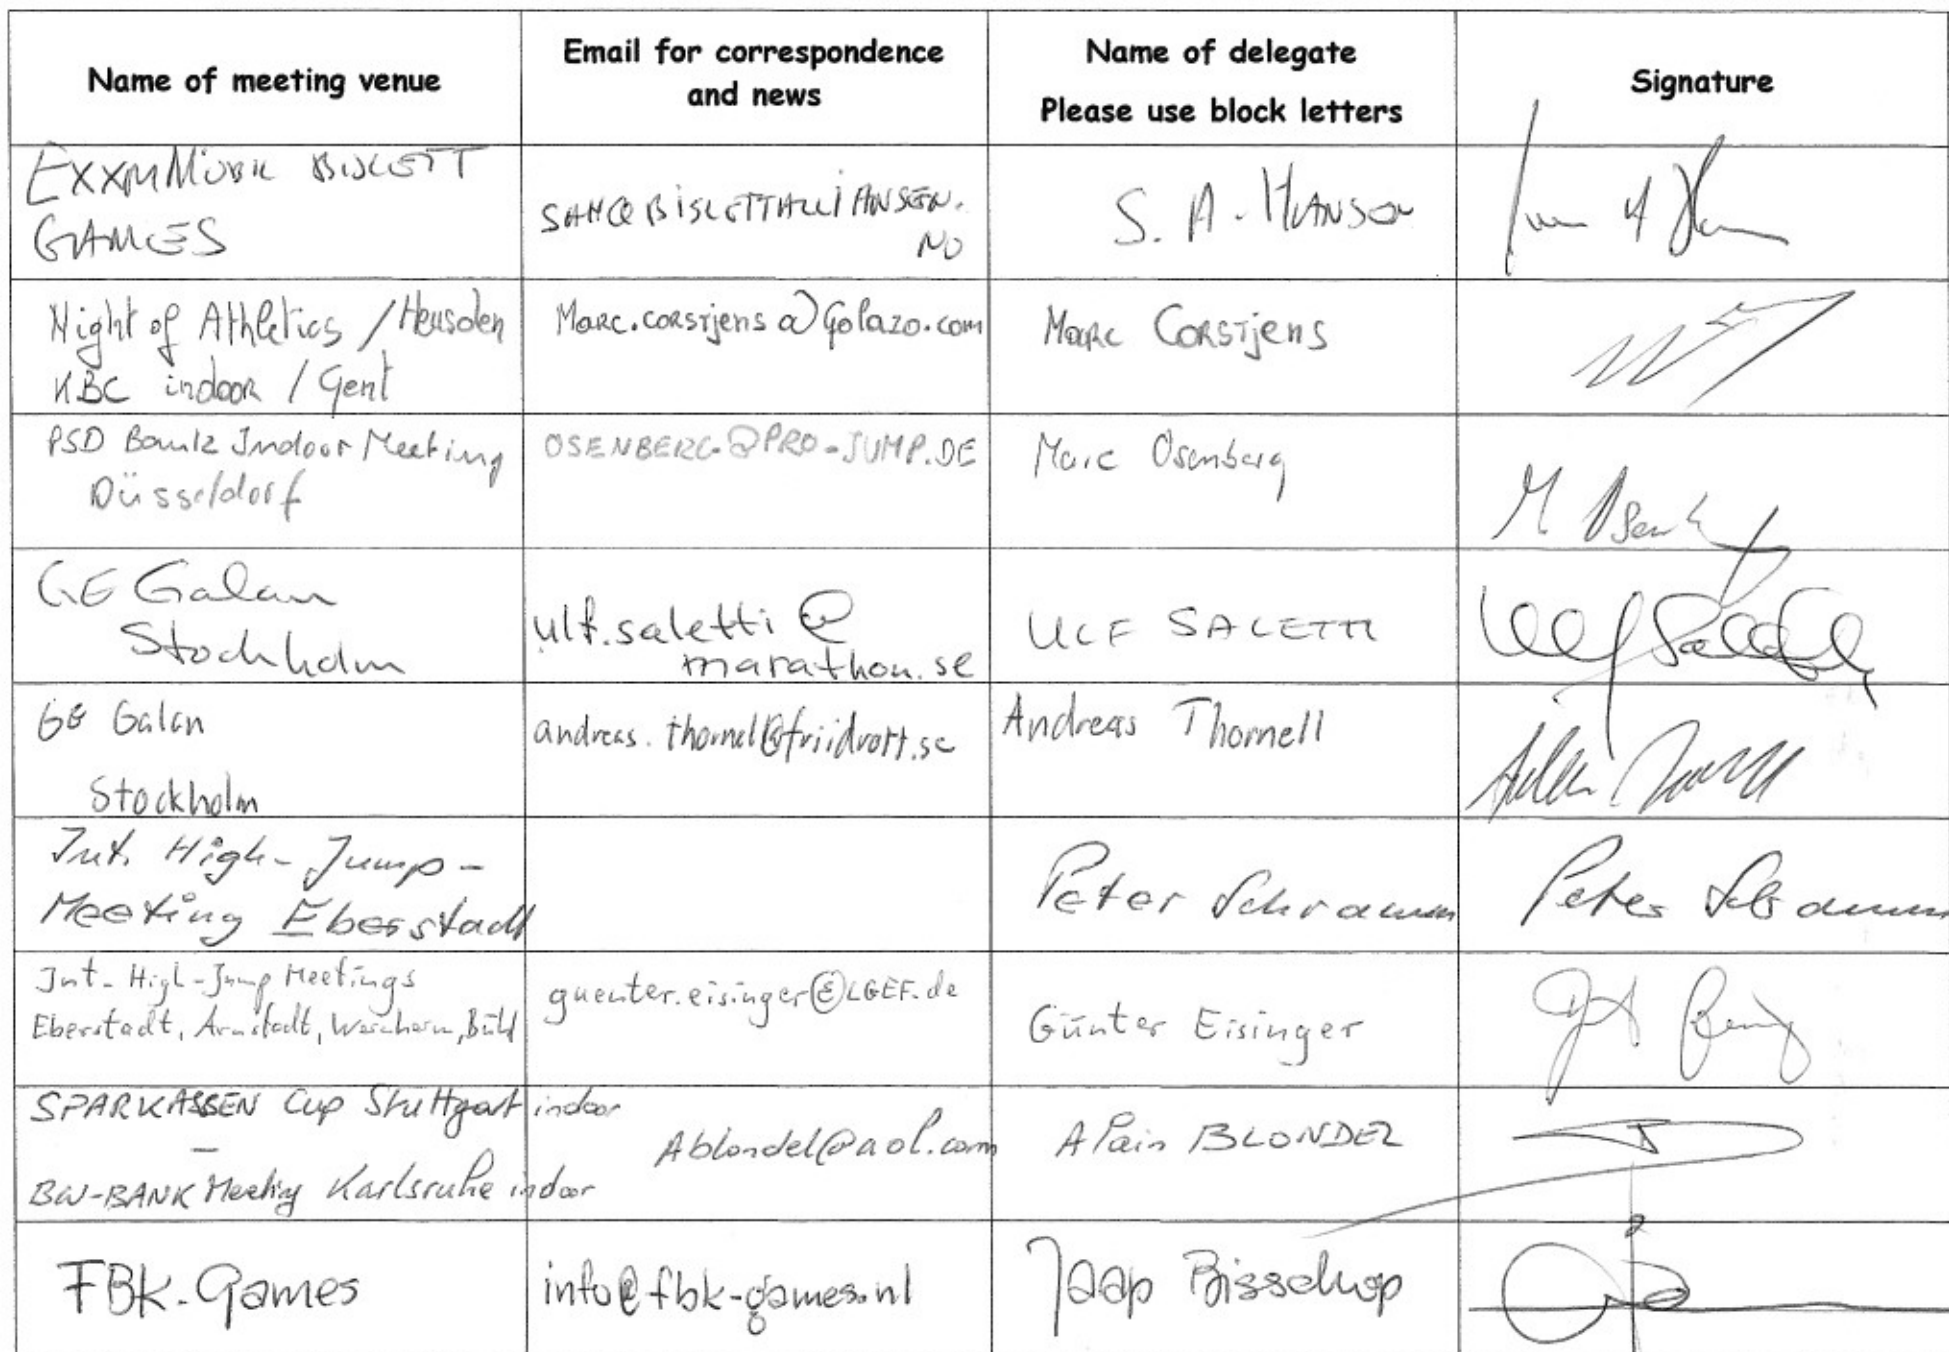 Name of meeting venue
Email for correspondence
and news
Name of delegate
Please use block letters
Signature
EXXONMOBIL BISLETT
GAMES
SAH@BISLETTALLIANSEN.
NO
S. A. HANSEN
Night of Athletics / Heusden
KBC indoor / Gent
Marc.corstjens@Golazo.com
Marc Corstjens
PSD Bank Indoor Meeting
Düsseldorf
OSENBERG@PRO-JUMP.DE
Marc Osenberg
M Osenb
GE Galan
Stockholm
ulf.saletti@
marathon.se
ULF SALETTI
Ulf Saletti
GE Galan
Stockholm
andreas.thornell@friidrott.se
Andreas Thornell
Int. High-Jump-
Meeting Eberstadt
Peter Schramm
Peter Schramm
Int. High-Jump Meetings
Eberstadt, Arnstadt, Weinheim, Bühl
guenter.eisinger@LGEF.de
Günter Eisinger
SPARKASSEN Cup Stuttgart indoor
–
BW-BANK Meeting Karlsruhe indoor
Ablondel@aol.com
Alain BLONDEL
FBK-Games
info@fbk-games.nl
Jaap Bisschop